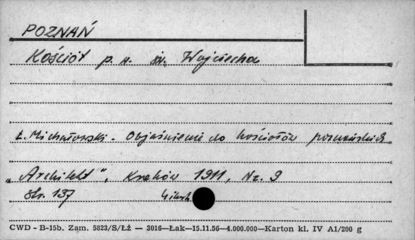 POZNAŃ
Kościół p. w. św. Wojciecha
Ł. Michałowski. Objaśnienie do kościołów poznańskich
„Architekt", Kraków 1911, Nr. 9
Str. 137
CWD - B-15b. Zam. 5823/S/Łż — 3016—Łak—15.11.56—4.000.000—Karton kl. IV A1/200 g